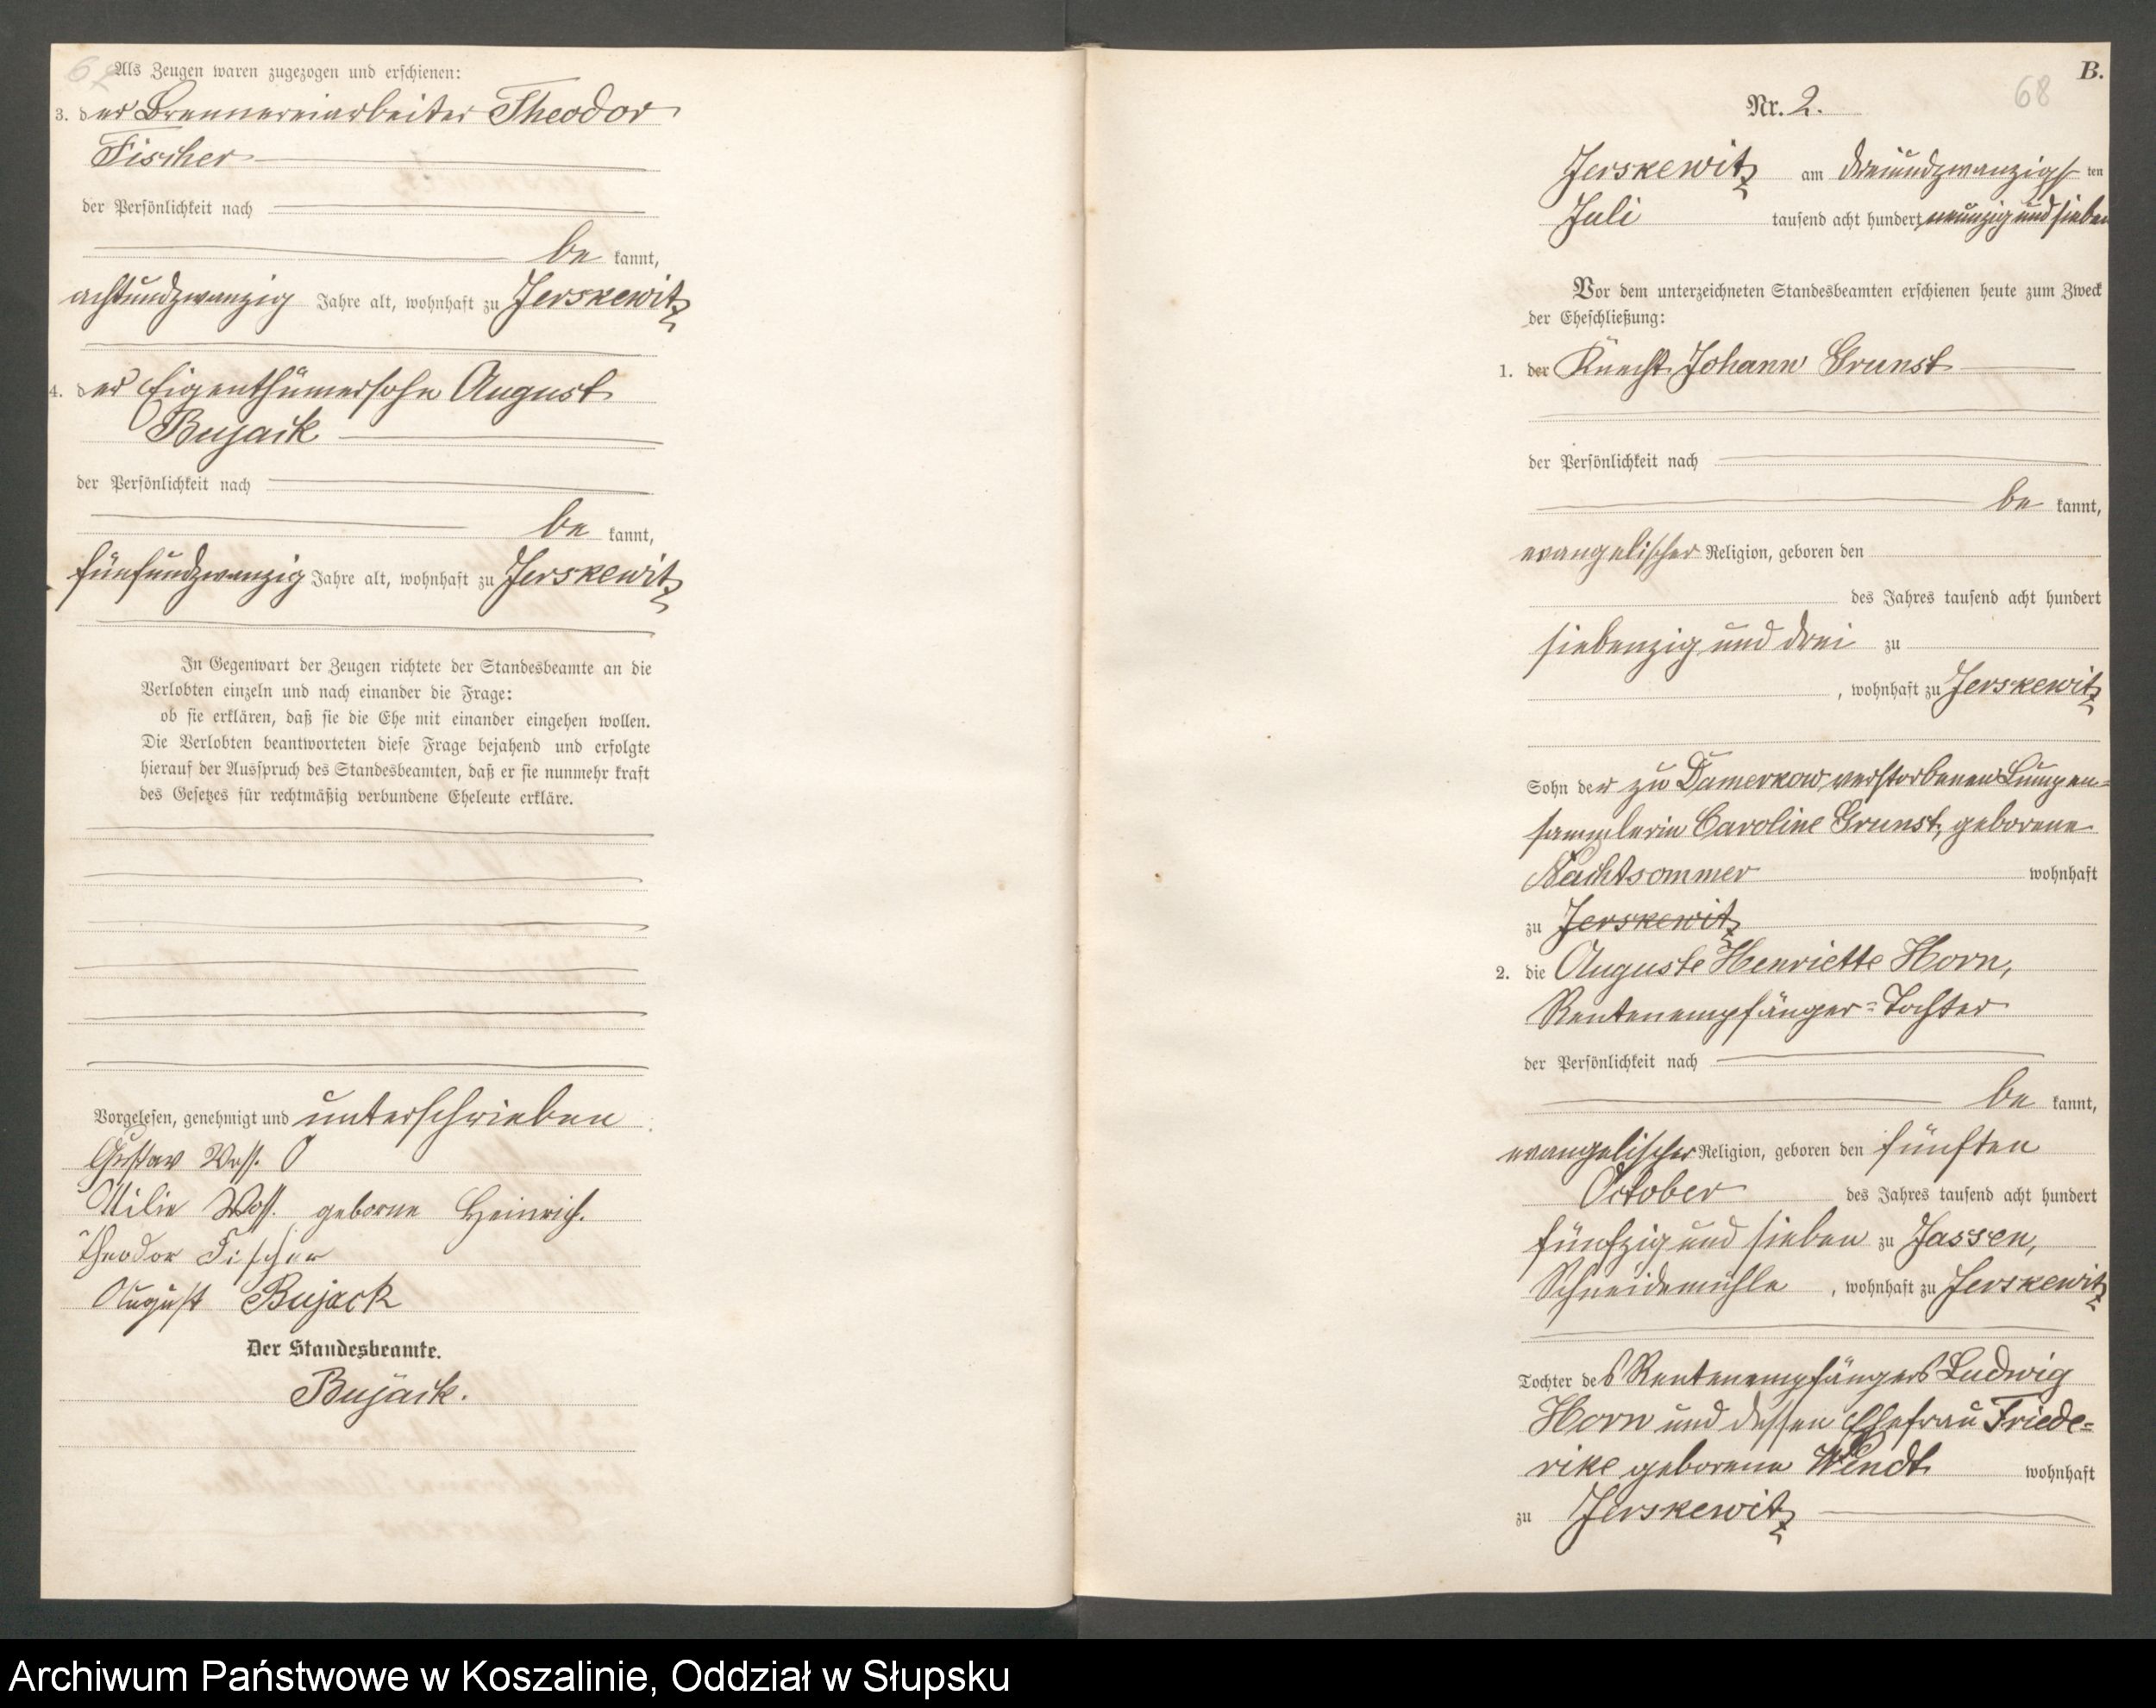 67
Als Zeugen waren zugezogen und erschienen:
3. der Brennereiarbeiter Theodor
Fischer
der Persönlichkeit nach
be kannt,
achtundzwanzig Jahre alt, wohnhaft zu Jerskewitz
4. der Eigenthümersohn August
Bujack
der Persönlichkeit nach
be kannt,
fünfundzwanzig Jahre alt, wohnhaft zu Jerskewitz
In Gegenwart der Zeugen richtete der Standesbeamte an die
Verlobten einzeln und nach einander die Frage:
ob sie erklären, daß sie die Ehe mit einander eingehen wollen.
Die Verlobten beantworteten diese Frage bejahend und erfolgte
hierauf der Ausspruch des Standesbeamten, daß er sie nunmehr kraft
des Gesetzes für rechtmäßig verbundene Eheleute erkläre.
Vorgelesen, genehmigt und unterschrieben
Gustav Voss.
Voss. geborne Heinrich.
Theodor Fischer
August Bujack
Der Standesbeamte.
Bujack.
B.
68
Nr. 2.
Jerskewitz am dreiundzwanzigsten
Juli tausend acht hundert neunzig und sieben
Vor dem unterzeichneten Standesbeamten erschienen heute zum Zweck
der Eheschließung:
1. der Knecht Johann Grunst
der Persönlichkeit nach
be kannt,
evangelischer Religion, geboren den
des Jahres tausend acht hundert
siebenzig und drei zu
, wohnhaft zu Jerskewitz
Sohn der zu Damerkow verstorbenen Lumpen-
sammlerin Caroline Grunst, geborene
Nachtsommer wohnhaft
zu Jerskewitz
2. die Auguste Henriette Horn,
Rentenempfänger-Tochter
der Persönlichkeit nach
be kannt,
evangelischer Religion, geboren den fünften
October des Jahres tausend acht hundert
fünfzig und sieben zu Jassen,
Schneidemühle, wohnhaft zu Jerskewitz
Tochter des Rentenempfängers Ludwig
Horn und dessen Ehefrau Friede-
rike geborene Wendt wohnhaft
zu Jerskewitz
Archiwum Państwowe w Koszalinie, Oddział w Słupsku